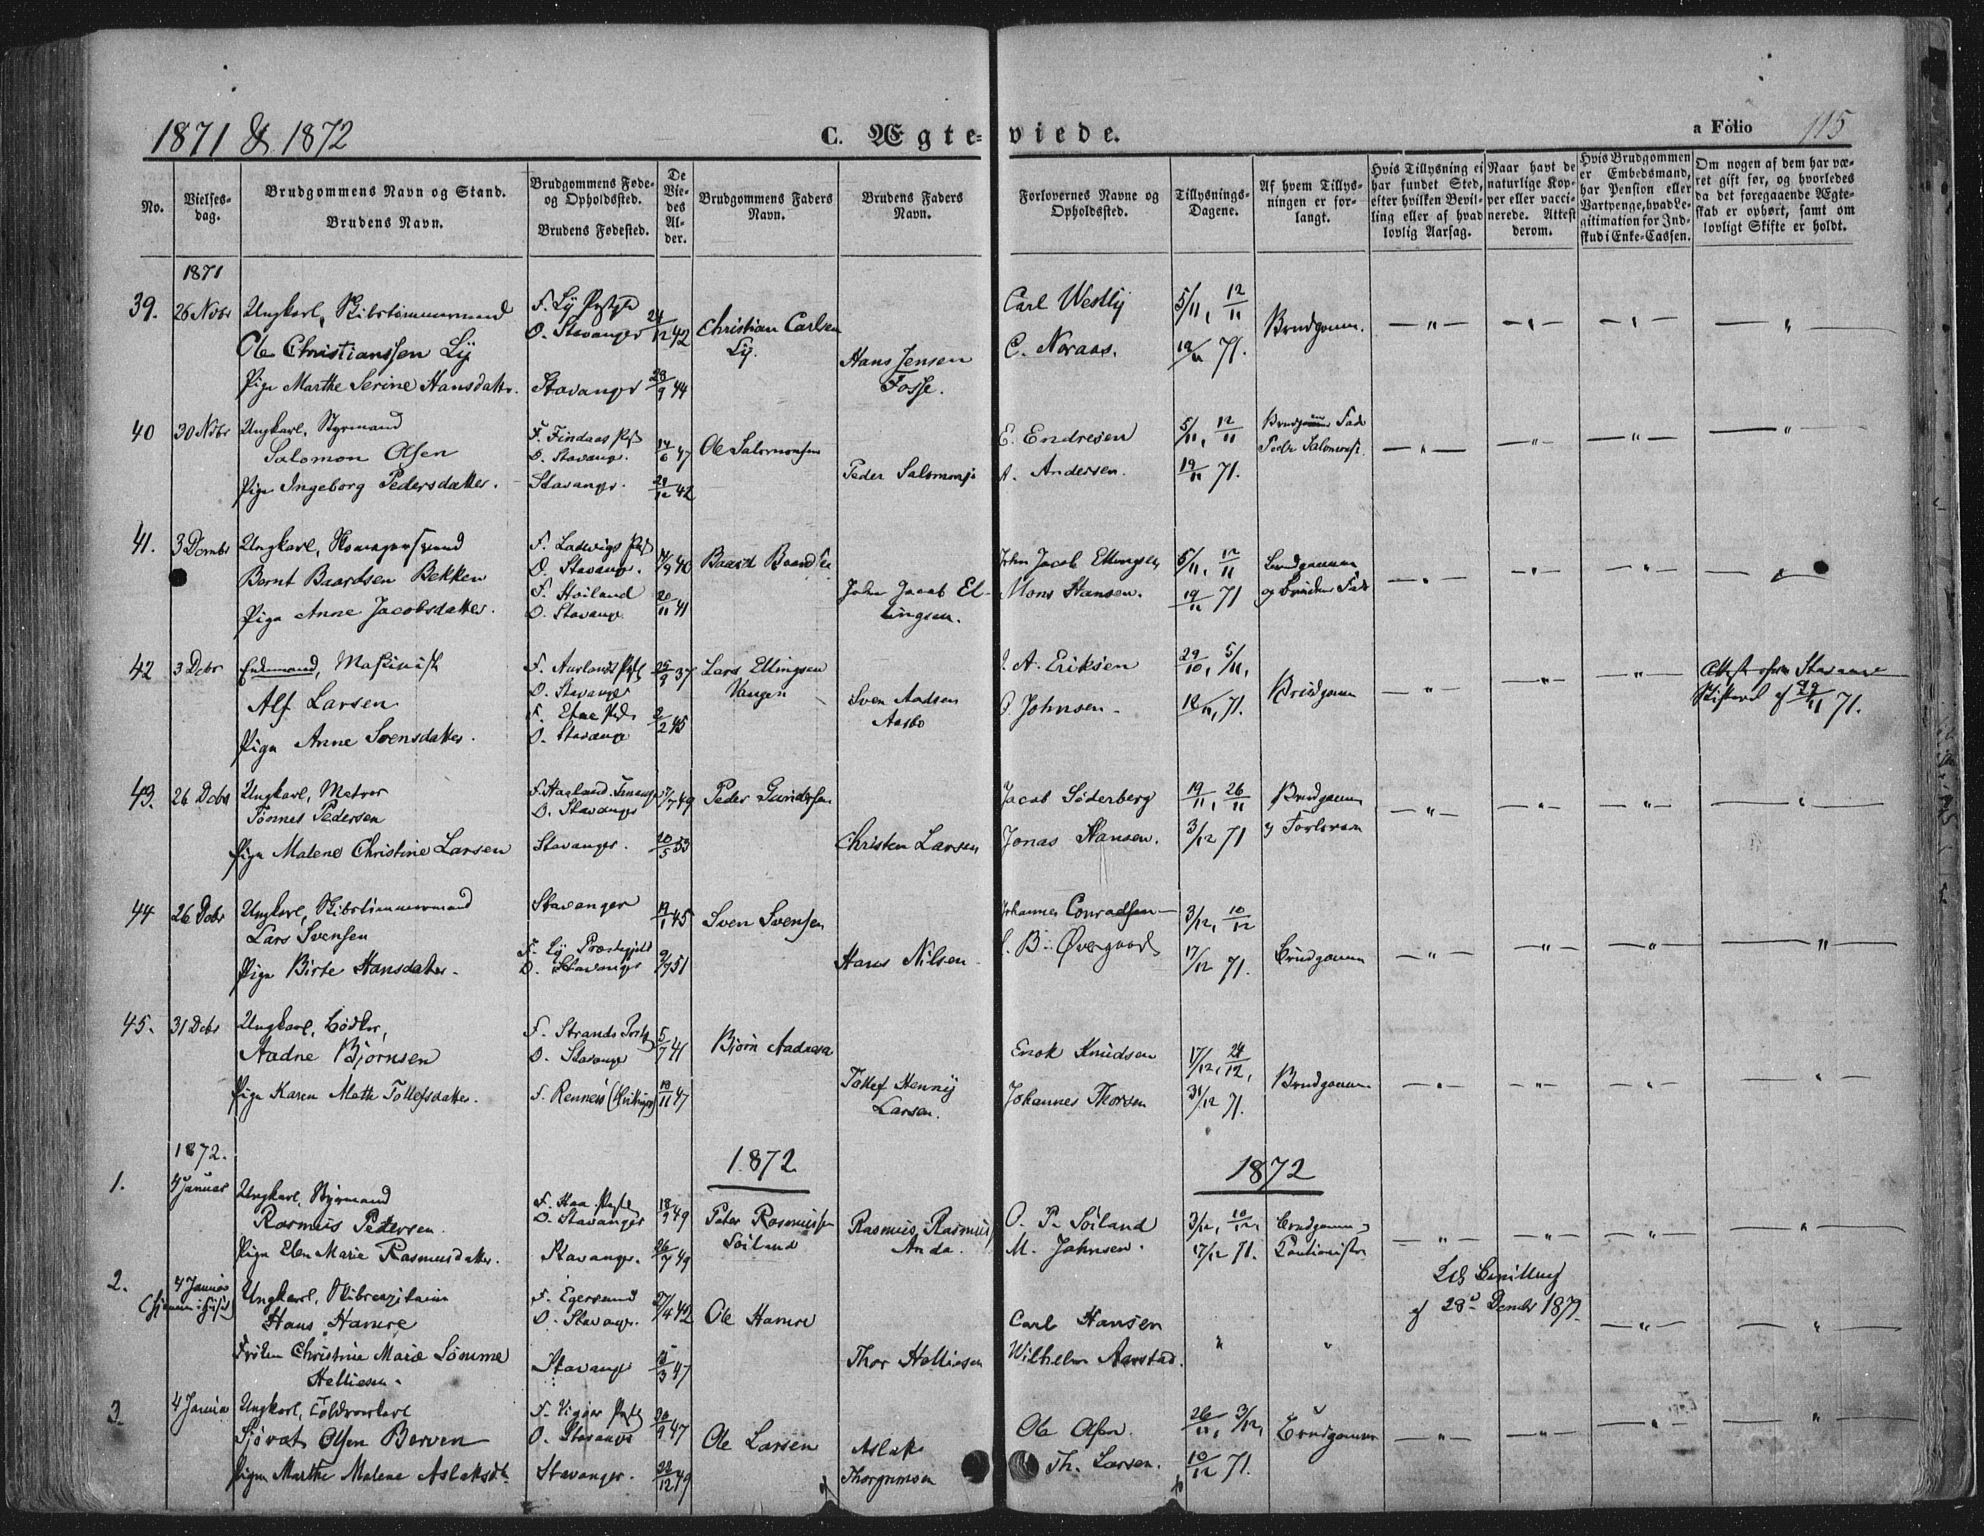 1871 & 1872
C. Ægte-viede.
a Folio 115
No.
Vielses-dag.
Brudgommens Navn og Stand.
Brudens Navn.
Brudgommens Føde- og Opholdssted.
Brudens Fødested.
De Viedes Alder.
Brudgommens Faders Navn.
Brudens Faders Navn.
Forlovernes Navne og Opholdssted.
Tillysnings-Dagene.
Af hvem Tillysningen er forlangt.
Hvis Tillysning ei har fundet Sted, efter hvilken Bevilling eller af hvad lovlig Aarsag.
Naar havt de naturlige Kopper eller vaccinerede. Attest derom.
Hvis Brudgommen er Embedsmand, har Pension eller Vartpenge, hvad Legitimation for Indskud i Enke-Cassen.
Om nogen af dem har været gift før, og hvorledes da det foregaaende Ægteskab er ophørt, samt om lovligt Skifte er holdt.
1871
39. 26 Novbr Ungkarl, Skibstømmermand
Ole Christianssen Lÿ
Pige Marthe Serine Hansdatter.
F. Lÿ Præstgld
O. Stavanger 24/12 42
Stavanger 28/9 44
Christian Carlsen Lÿ.
Hans Jensen Fosse.
Carl Westlÿ
C. Noraas.
5/11, 12/11
19/11 71.
Brudgomm.
40 30 Novbr Ungkarl, Styrmand
Salomon Olsen
Pige Ingeborg Pedersdatter.
F. Findaas Pr
O. Stavang. 14/6 47
Stavanger. 29/12 42
Ole Salomonsen
Peder Salomons
E. Endresen
A. Andersen.
5/11, 12/11
19/11 71.
Peder Salomons
41. 3 Decmbr Ungkarl,
Bernt Baardsen Bekken
Pige Anne Jacobsdatter.
F. Ladvigs Pr
O. Stavang. 40
F. Høiland
O. Stavang. 20/11 41
Baard Baardse
John Jacob Ellingsen.
John Jacob Ellingsen
Mons Hansen.
5/11, 12/11
19/11 71
Brudgommen og Brudens Fad
42 3 Decbr Enkemand, Maskinist
Alf Larsen
Pige Anne Svensdatter.
F. Aurlands Pr 37
O. Stavanger
F. Etne Pr 2/2 45
O. Stavanger
Lars Ellingsen Vangen
Sven Aadsen Aasbo
A. Eriksen
O. Johnsen.
29/10, 5/11,
12/11, 71.
Brudgomm
Attest fra Stavanger
Skifteret af 29/11 71.
43. 26 Decbr Ungkarl,
Tønnes Pedersen
Pige Malene Christine Larsen
O. Stavanger 7/7 49
Stavanger. 20/5 53
Peder Gundersen
Christen Larsen
Jacob Søderberg
Jonas Hansen.
19/11, 26/11
3/12 71
Brudgomm
og Forlover
44 26 Decbr Ungkarl, Skibstømmermand
Lars Svensen
Pige Birte Hansdatter.
Stavanger 19/1 45
F. Lÿ Præstegjeld
O. Stavanger 9/7 51
Sven Svensen
Hans Nilsen.
Johannes Conradsen
B. Øvergaard
3/12, 10/12
17/12 71.
Brudgomm
45. 31 Decbr Ungkarl, Bødker,
Aadne Bjørnsen
Pige Karen Mathe Tollefsdatter.
F. Strands Pr
O. Stavanger 5/7 41
F. Rennesø 19/11 47
Bjørn Aadnesen
Tollef Henney Larsen.
Enok Knudsen
Johannes Thorsen
17/12, 24/12,
31/12 71.
Brudgomm
1872. 1872 1872
1. 4 Januar Ungkarl, Styrmand
Rasmus Pedersen.
Pige Elen Marie Rasmusdatter.
F. Haa Præstg
O. Stavanger 18/9 49
Stavanger. 26/7 49
Peter Rasmussen Søiland
Rasmus Rasmus Anda.
O. P. Søiland
M. Johnsen.
3/12, 10/12,
17/12 71.
Brudgomm
2. 4 Januar Ungkarl, Skibscapitain
Hans Hamre
Frøken Christine Marie Sømme Helliesen.
F. Egersund
O. Stavanger. 27/4 42
Stavanger 5/3 47
Ole Hamre
Thor Helliesen
Carl Hansen
Wilhelm Aarstad.
Bevilling
af 28de Decmbr 1871.
3. 4 Januar Ungkarl,
Sjovat Olsen Berven
Pige Marthe Malene Aslaksdt.
F. Vigør Pr
O. Stavanger 47
Stavanger. 22/12 49
Ole Larsen
Aslak Thorgrimsen
Ole Olsen.
Th. Larsen.
26/11, 3/12,
10/12 71.
Brudgomm